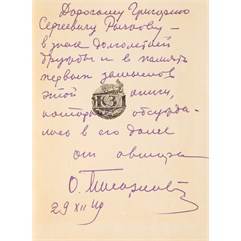 Дорогому Григорию
Сергеевичу
в знак долголетней
дружбы и в память
первых замыслов
этой книги,
которые обсужда-
лись в его доме
от автора
О.
29 XII 49